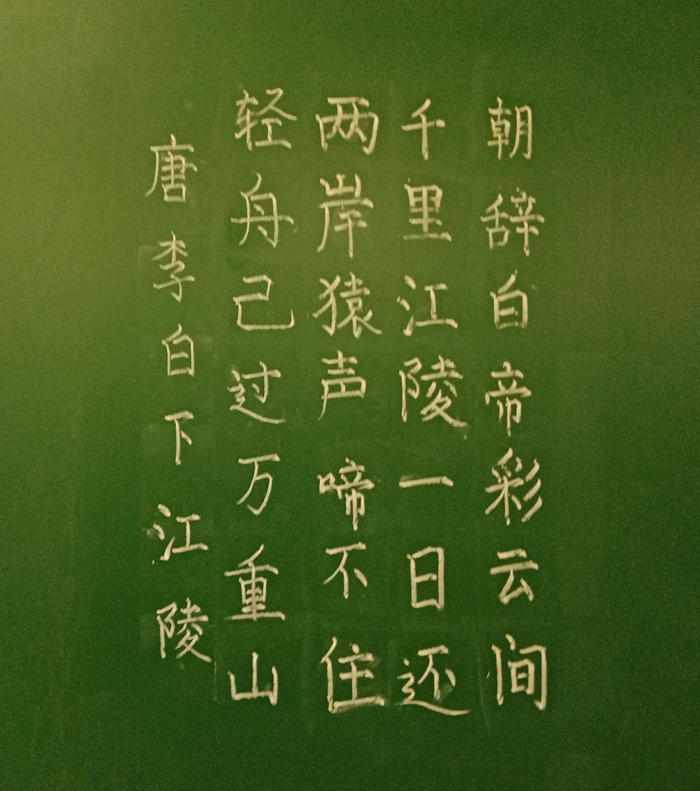 朝辞白帝彩云间
千里江陵一日还
两岸猿声啼不住
轻舟己过万重山
唐李白下江陵